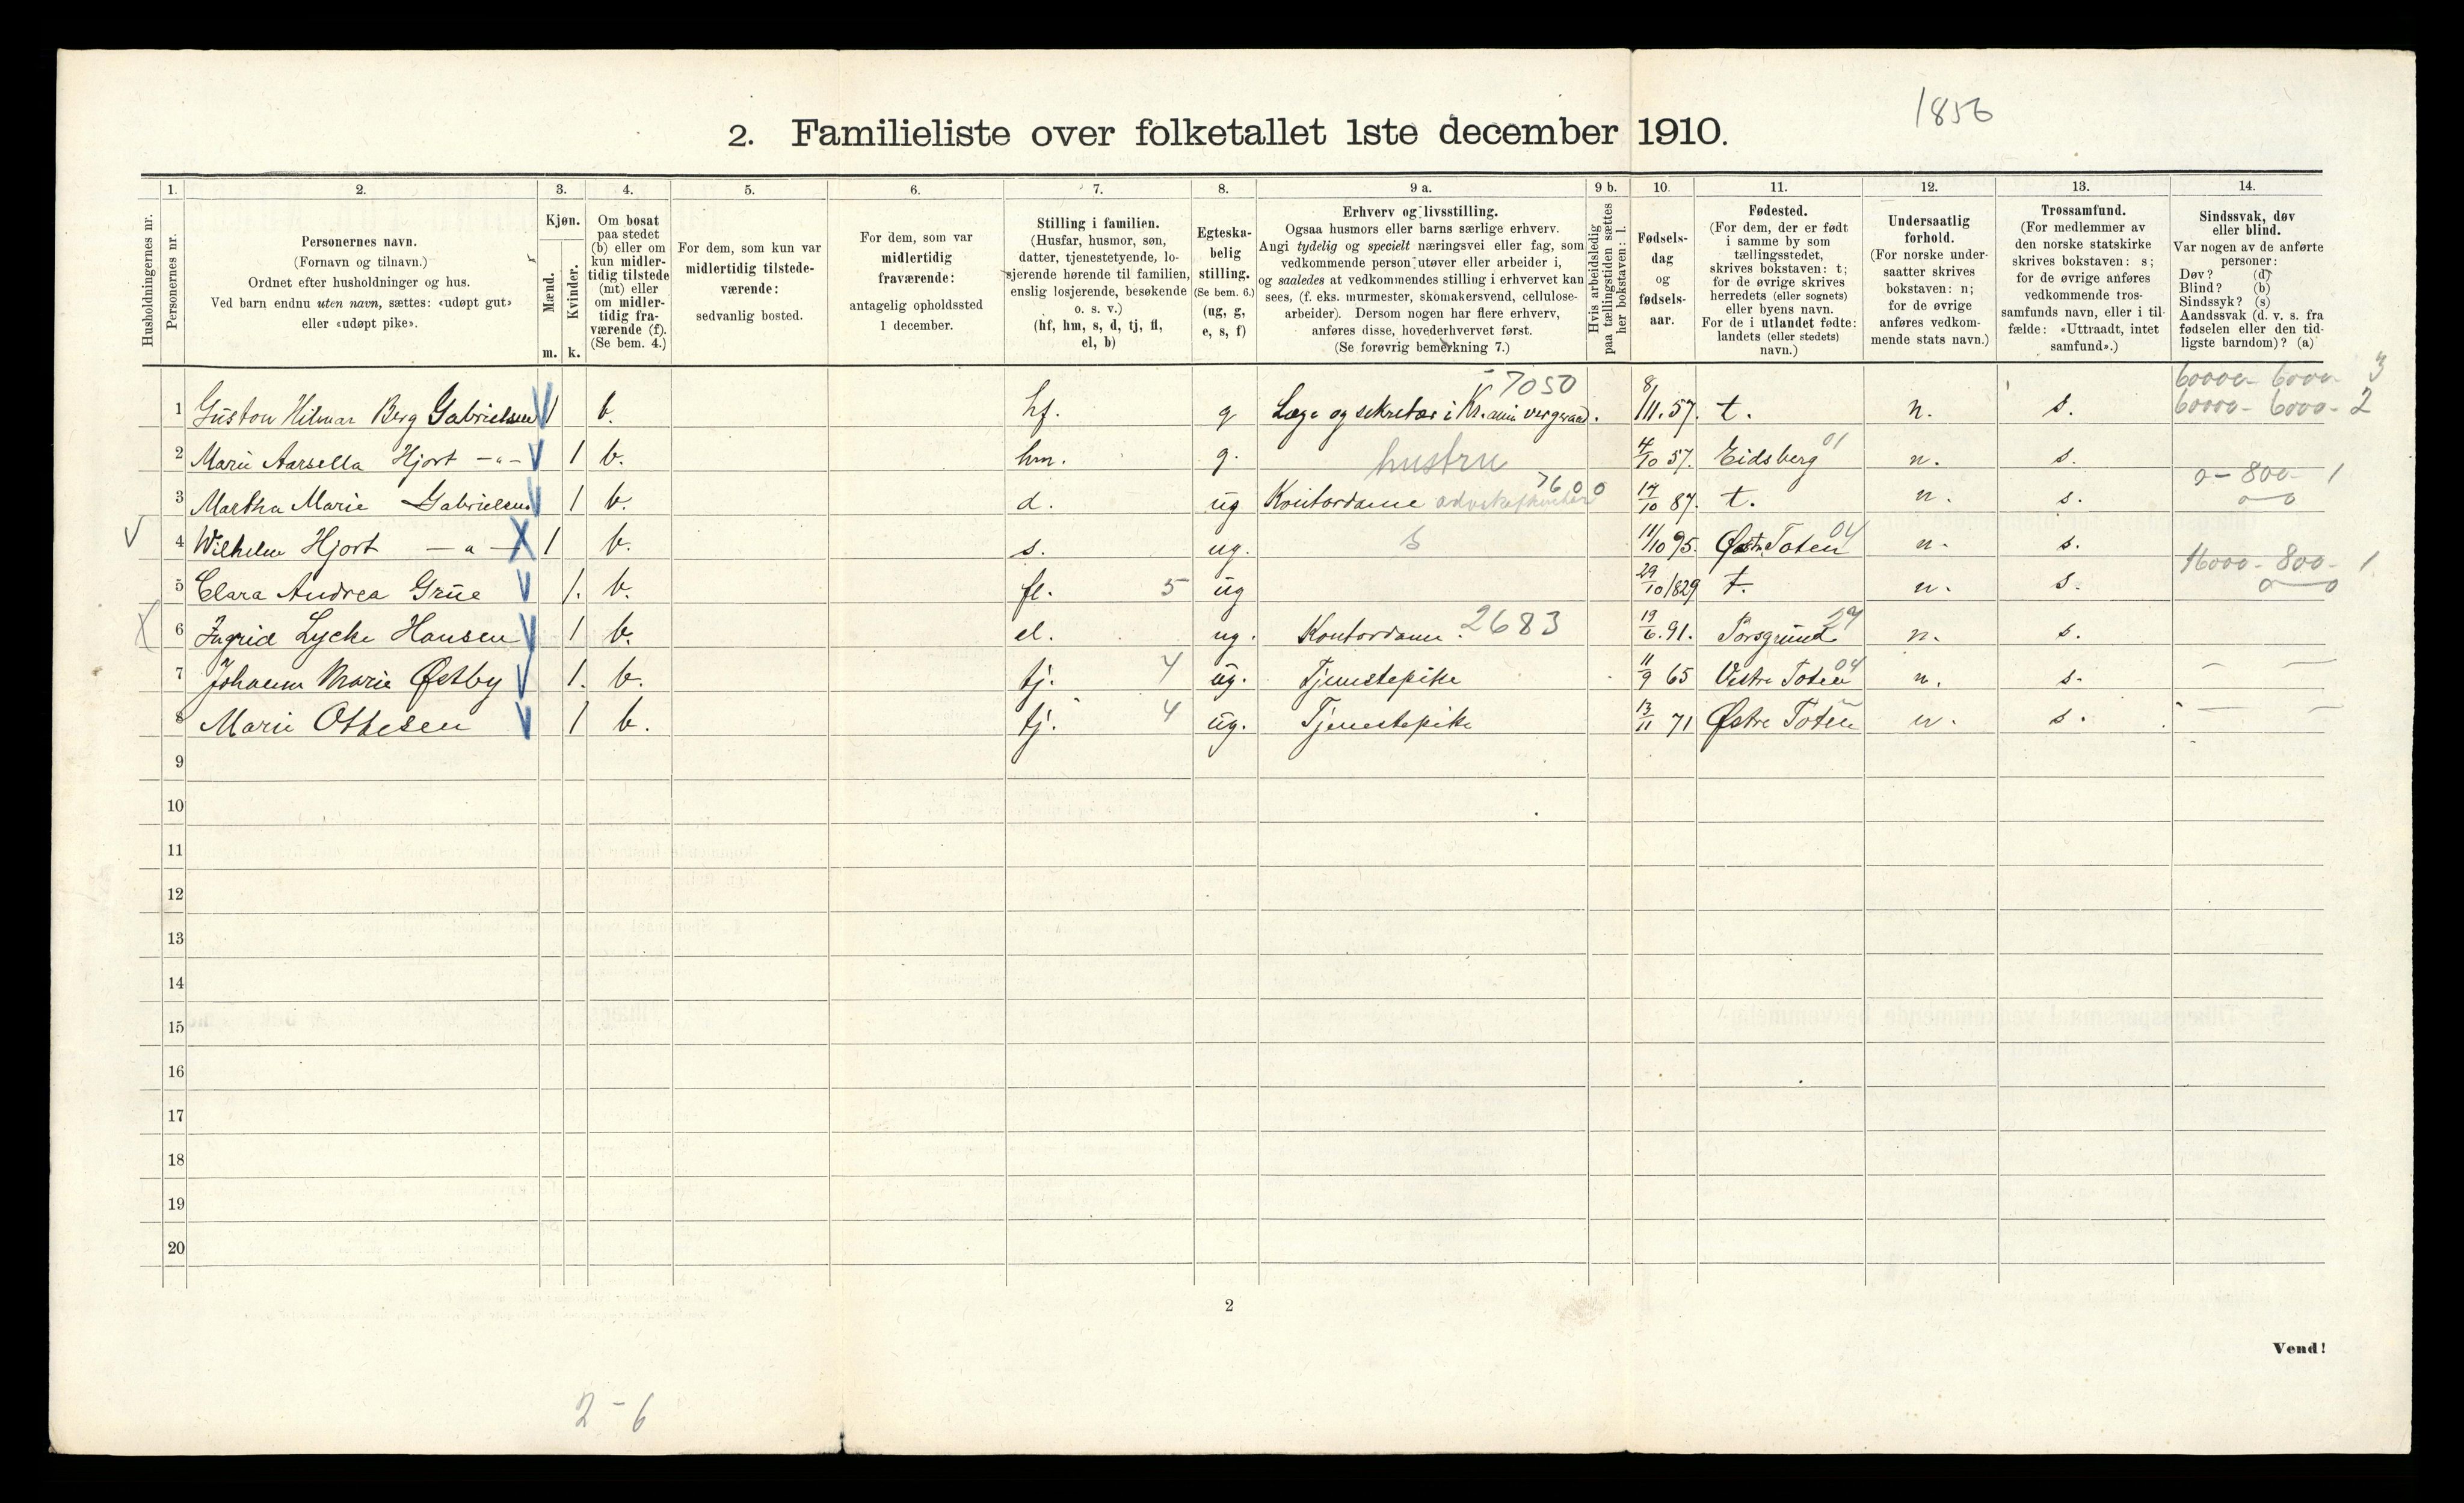 1856
2. Familieliste over folketallet 1ste december 1910.
1. 2. 3. 4. 5. 6. 7. 8. 9 a. 9 b. 10. 11. 12. 13. 14.
Husholdningernes nr.
Personernes nr.
Personernes navn.
(Fornavn og tilnavn.)
Ordnet efter husholdninger og hus.
Ved barn endnu uten navn, sættes: «udøpt gut»
eller «udøpt pike».
Kjøn.
Mænd.
Kvinder.
m. k.
Om bosat
paa stedet
(b) eller om
kun midler-
tidig tilstede
(mt) eller
om midler-
tidig fra-
værende (f).
(Se bem. 4.)
For dem, som kun var
midlertidig tilstede-
værende:
sedvanlig bosted.
For dem, som var
midlertidig
fraværende:
antagelig opholdssted
1 december.
Stilling i familien.
(Husfar, husmor, søn,
datter, tjenestetyende, lo-
sjerende hørende til familien,
enslig losjerende, besøkende
o. s. v.)
(hf, hm, s, d, tj, fl,
el, b)
Egteska-
belig
stilling.
(Se bem. 6.)
(ug, g,
e, s, f)
Erhverv og livsstilling.
Ogsaa husmors eller barns særlige erhverv.
Angi tydelig og specielt næringsvei eller fag, som
vedkommende person utøver eller arbeider i,
og saaledes at vedkommendes stilling i erhvervet kan
sees, (f. eks. murmester, skomakersvend, cellulose-
arbeider). Dersom nogen har flere erhverv,
anføres disse, hovederhvervet først.
(Se forøvrig bemerkning 7.)
Hvis arbeidsledig
paa tællingstiden sættes
her bokstaven: l.
Fødsels-
dag
og
fødsels-
aar.
Fødested.
(For dem, der er født
i samme by som
tællingsstedet,
skrives bokstaven: t;
for de øvrige skrives
herredets (eller sognets)
eller byens navn.
For de i utlandet fødte:
landets (eller stedets)
navn.)
Undersaatlig
forhold.
(For norske under-
saatter skrives
bokstaven: n;
for de øvrige
anføres vedkom-
mende stats navn.)
Trossamfund.
(For medlemmer av
den norske statskirke
skrives bokstaven: s;
for de øvrige anføres
vedkommende tros-
samfunds navn, eller i til-
fælde: «Uttraadt, intet
samfund».)
Sindssvak, døv
eller blind.
Var nogen av de anførte
personer:
Døv? (d)
Blind? (b)
Sindssyk? (s)
Aandssvak (d. v. s. fra
fødselen eller den tid-
ligste barndom)? (a)
7050 60000 - 6000 - 3
1 Gustav Hilmar Berg Gabrielsen 1 b. hf. g Læge og sekretær i 8/11. 57. t. n. s. 60000 - 6000 - 2
2 Marie Aarsella Hjort -"- 1 b. hm. g. hustru 4/10 57. Eidsberg 01 n. s.
3 Martha Marie Gabrielsen 1 b. d. ug Kontordame 7600 17/10 87. t. n. s. 0 - 800 - 1
4 Wilhelm Hjort -"- 1 b. s. ug. s 11/10 95. Østr. Toten 04 n. s.
5 Clara Andrea Grüe 1. b. fl. 5 ug 29/10 1829 t. n. s. 16000 - 800 - 1
6 Ingrid Lycke Hansen 1 b. el. ug. Kontordame. 2683 19/6. 91. Porsgrund n. s.
7 Johanne Marie Østby 1. b. tj. 4 ug. Tjenestepike 11/9 65 Vestre Toten 04 n. s.
8 Marie Ottesen 1 b. tj. 4 ug. Tjenestepike 13/11 71 Østre Toten n. s.
9
10
11
12
13
14
15
16
17
18
19
20
2
Vend!
2 - 6